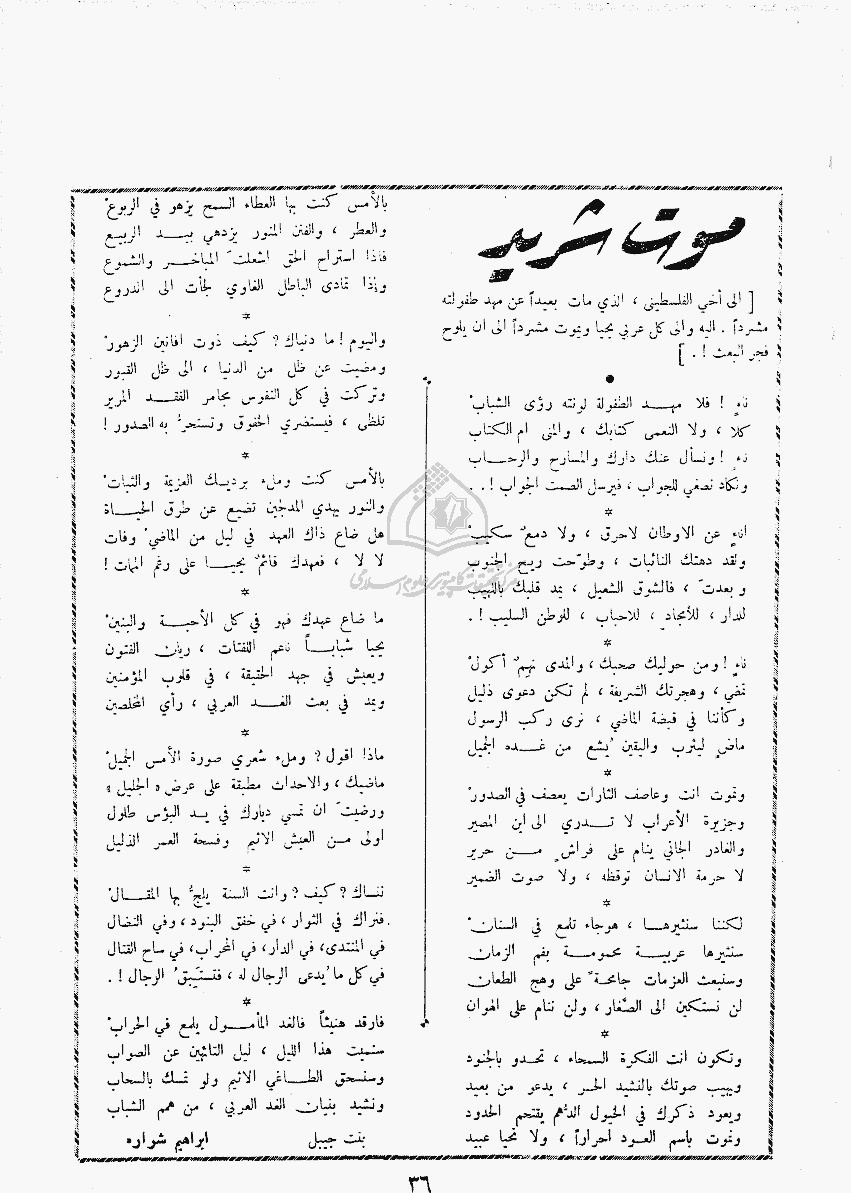 موت شريد
[ الى أخي الفلسطيني ، الذي مات بعيداً عن مهد طفولته
مشرداً . اليه والى كل عربي يحيا ويموت مشرداً الى ان يلوح
فجر البعث ! . ]
نامٍ ! فلا مهد الطفولة لونته رؤى الشباب
كلا ، ولا النعمى كتابك ، والمنى ام الكتاب
نامٍ ! ونسأل عنك دارك والمسارح والرحاب
ونكاد نصغي للجواب ، فيرسل الصمت الجواب ! . .
*
انامٍ عن الاوطان لاحرق ، ولا دمع سكيب
ولقد دهتك النائبات ، وطوّحت ريح الجنوب
وبعدتَ ، فالشوق الشعيل ، يمد قلبك باللهيب
للدار ، للأمجاد ، للاحباب ، للوطن السليب ! .
*
نامٍ ! ومن حوليك صحبك ، والمدى نهمٌ أكول
تمضي ، وهجرتك الشريفة ، لم تكن دعوى ذليل
وكأننا في قبضة الماضي ، نرى ركب الرسول
ماضٍ ليثرب واليقين يُشع من غده الجميل
*
وتموت انت وعاصف الثارات يعصف في الصدور
وجزيرة الأعراب لا تدري الى اين المصير
والغادر الجاني ينام على فراشٍ من حرير
لا حرمة الانسان توقظه ، ولا صوت الضمير
*
لكننا سنثيرها ، هوجاء تلمع في السنان
سنثيرها عربية محمومة بفم الزمان
وسنبعث العزمات جامحةً على وهج الطعان
لن نستكين الى الصَّغار ، ولن ننام على الهوان
*
وتكون انت الفكرة السمحاء ، تحدو بالجنود
ويهيب صوتك بالنشيد الحر ، يدعو من بعيد
ويعود ذكرك في الخيول الدُّهم يقتحم الحدود
ونموت باسم العود احراراً ، ولا نحيا عبيد
بالأمس كنت بها العطاء السمح يزهو في الربوع
والعطر ، والفنن المنور يزدهي بيد الربيع
فاذا استراح الحق اشعلتَ المباخر والشموع
وإذا تمادى الباطل الغاوي لجأت الى الدروع
*
واليوم ! ما دنياك ؟ كيف ذوت افانين الزهور
ومضيت عن ظل من الدنيا ، الى ظل القبور
وتركت في كل النفوس مجامر الفقد المرير
تلظى ، فيستضري الخفوق وتستحرُّ به الصدور !
*
بالأمس كنت وملء برديك العزيمة والثبات
والنور يهدي المدلجين تضيع عن طرق الحياة
هل ضاع ذاك العهد في ليل من الماضي وفات
لا لا ، فعهدك قائمٌ يحيا على رغم الممات !
*
ما ضاع عهدك فهو في كل الأحبة والبنين
يحيا شباباً ناعم اللفتات ، ريان الفتون
ويعيش في جهد الحقيقة ، في قلوب المؤمنين
ويمد في بعث الغد العربي ، رأي المخلصين
*
ماذا اقول ؟ وملء شعري صورة الأمس الجميل
ماضيك ، والاحداث مطبقة على عرض « الجليل »
ورضيتَ ان تمسي ديارك في يد البؤس طلول
اولى من العيش الاثيم وفسحة العمر الذليل
*
ننساك ؟ كيف ؟ وانت السنة يلجُّ بها المقال
فنراك في الثوار ، في خفق البنود ، وفي النضال
في المنتدى ، في الدار ، في المحراب ، في ساح القتال
في كل ما يُدعى الرجال له ، فتستبق الرجال ! .
*
فارقد هنيئاً فالغد المأمول يلمع في الحراب
سنميت هذا الليل ، ليل التائهين عن الصواب
وسنسحق الطاغي الاثيم ولو تمسك بالسحاب
ونشيد بنيان الغد العربي ، من همم الشباب
بنت جبيل
ابراهيم شراره
٣٦